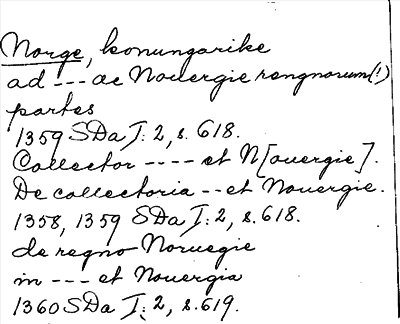 Norge, konungarike
ad --- ac Nouergie rengnorum(!)
partes
1359 SDa I: 2, s. 618.
Collector ---- et N[ouergie].
De collectoria -- et Nouergie.
1358, 1359 SDa I: 2, s. 618.
de regno Noruegie
in --- et Nouergia
1360 SDa I: 2, s. 619.